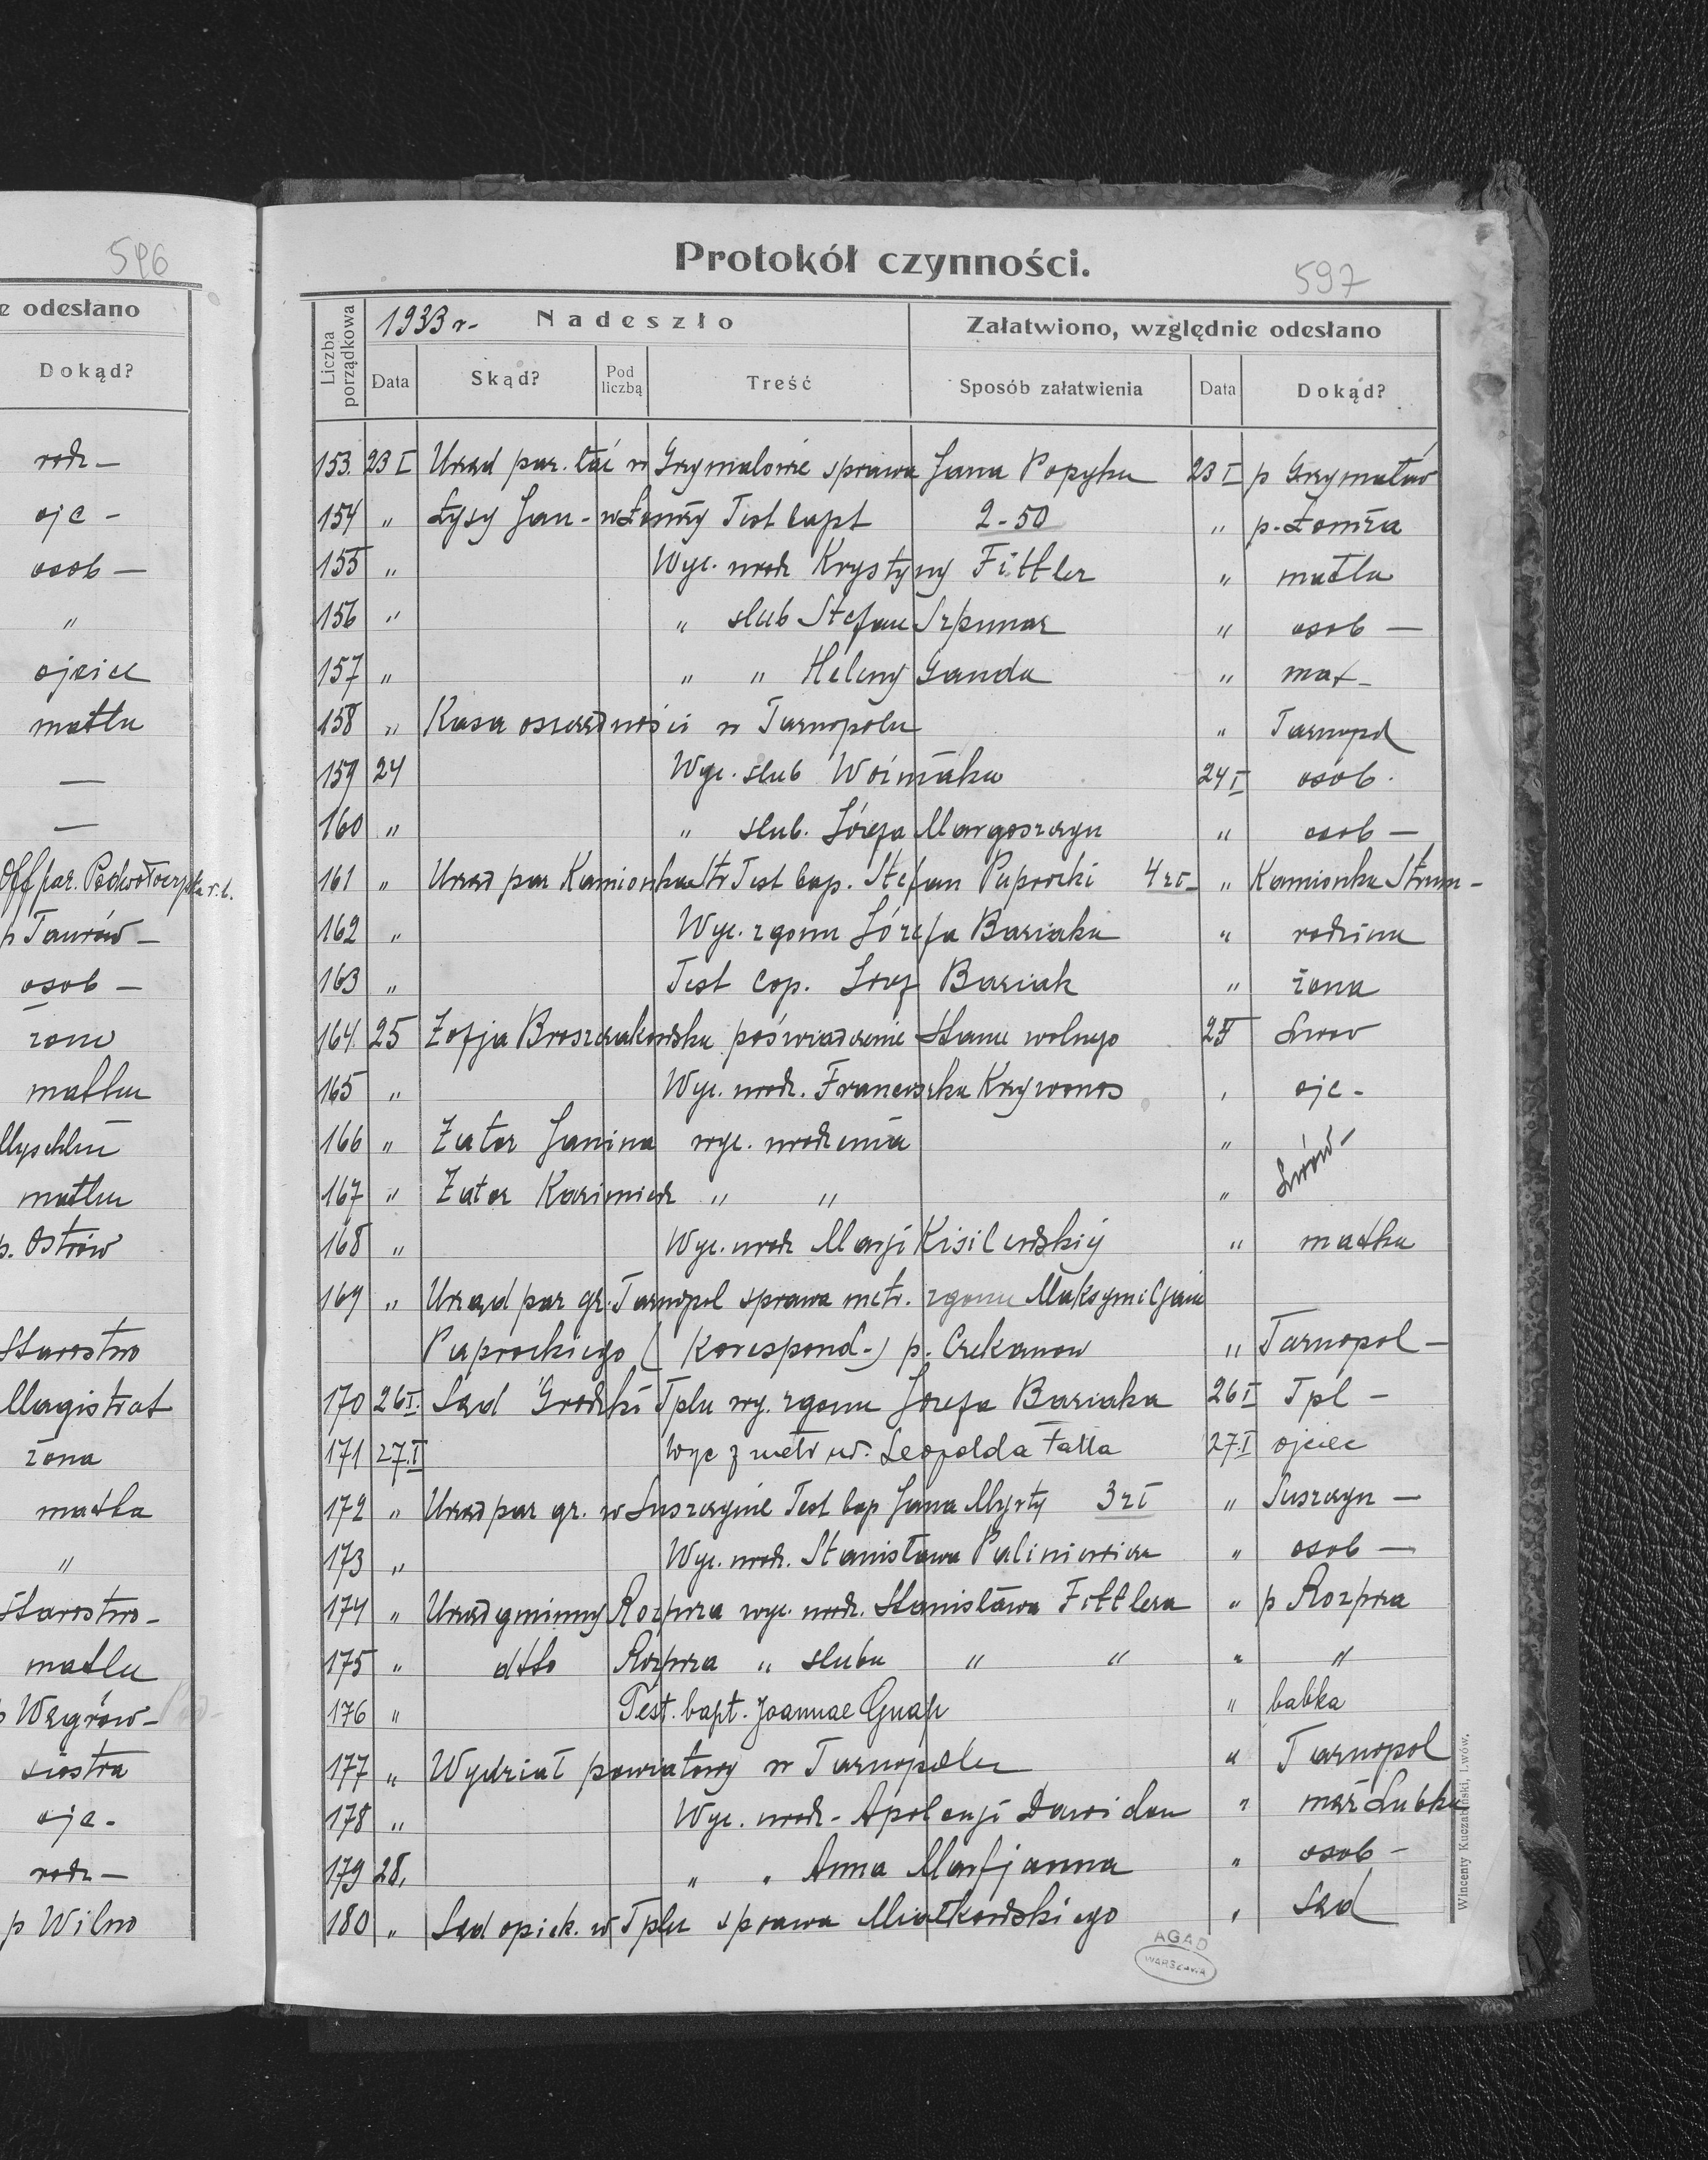 596
e odesłano
Dokąd?
rodz -
ojc -
osob -
"
ojciec
matka
—
—
Off par. Podwołoczyska r. l.
p Taurów -
osob -
żona
matka
matka
p. Ostrów
Starostwo
Magistrat
żona
matka
"
Starostwo -
matka
p Węgrów -
siostra
ojc -
rodz -
p Wilno
Protokół czynności.
597
Liczba porządkowa
1933 r - Nadeszło
Załatwiono, względnie odesłano
Data Skąd? Pod liczbą Treść Sposób załatwienia Data Dokąd?
153. 23 I Urząd par. łać w Grzymałowie sprawa Jana Popyka 23 I p Grzymałów
154 " Łysy Jan - w Łomży Test bapt 2-50 " p. Łomża
155 " Wyc. urodz Krystyny Fittler " matka
156 " " slub Stefan Szpunar " osob -
157 " " " Heleny Ganda " mat -
158 " Kasa oszczędności w Tarnopolu " Tarnopol
159 24 Wyc. slub Woźniaka 24 I osob.
160 " " slub. Józefa Margoszczyn " osob -
161 " Urząd par Kamionka Str Test bap. Stefan Paprocki 4 zł - " Kamionka Strum -
162 " Wyc. zgonu Józefa Bariaka " rodzina
163 " Test Cop. Józef Bariak " żona
164. 25 Zofja Broszczakowska poświadczenie stanu wolnego 25 Lwow
165 " Wyc. urodz. Franciszka Krzywonos , ojc -
166 " Zator Janina wyc. urodzenia " Lwów -
167 " Zator Kazimierz " " "
168 " Wyc. urodz Marji Kisilewskiej " matka
169 " Urząd par gr. Tarnopol sprawa metr. zgonu Maksymiljana
Paprockiego ( Korespond -) p. Czekanow " Tarnopol -
170 26 I. Sąd Grodzki Tplu wy. zgonu Józefa Bariaka 26 I Tpl -
171 27.I Wyc z metr ur. Leopolda Fałła 27.I ojciec
172 " Urząd par gr. w Suszczynie Test bap Jana Myrty 3 zł " Suszczyn -
173 " Wyc. urodz. Stanisława Paliniewicz " osob -
174 " Urząd gminny Rozprza wyc. urodz. Stanisława Fittlera " p Rozprza
175 " dtto Rozprza " slubu " " " "
176 " Test. bapt. Joannae Gnap " babka
177 " Wydział powiatowy w Tarnopolu " Tarnopol
178 " Wyc. urodz - Apolonji Dawidan " mąż Lubka
179 28. " " Anna Marfjanna " osob -
180 " Sąd opiek. w Tplu sprawa Miałkowskiego , Sąd
Wincenty Kuczabiński, Lwów.
AGAD
WARSZAWA